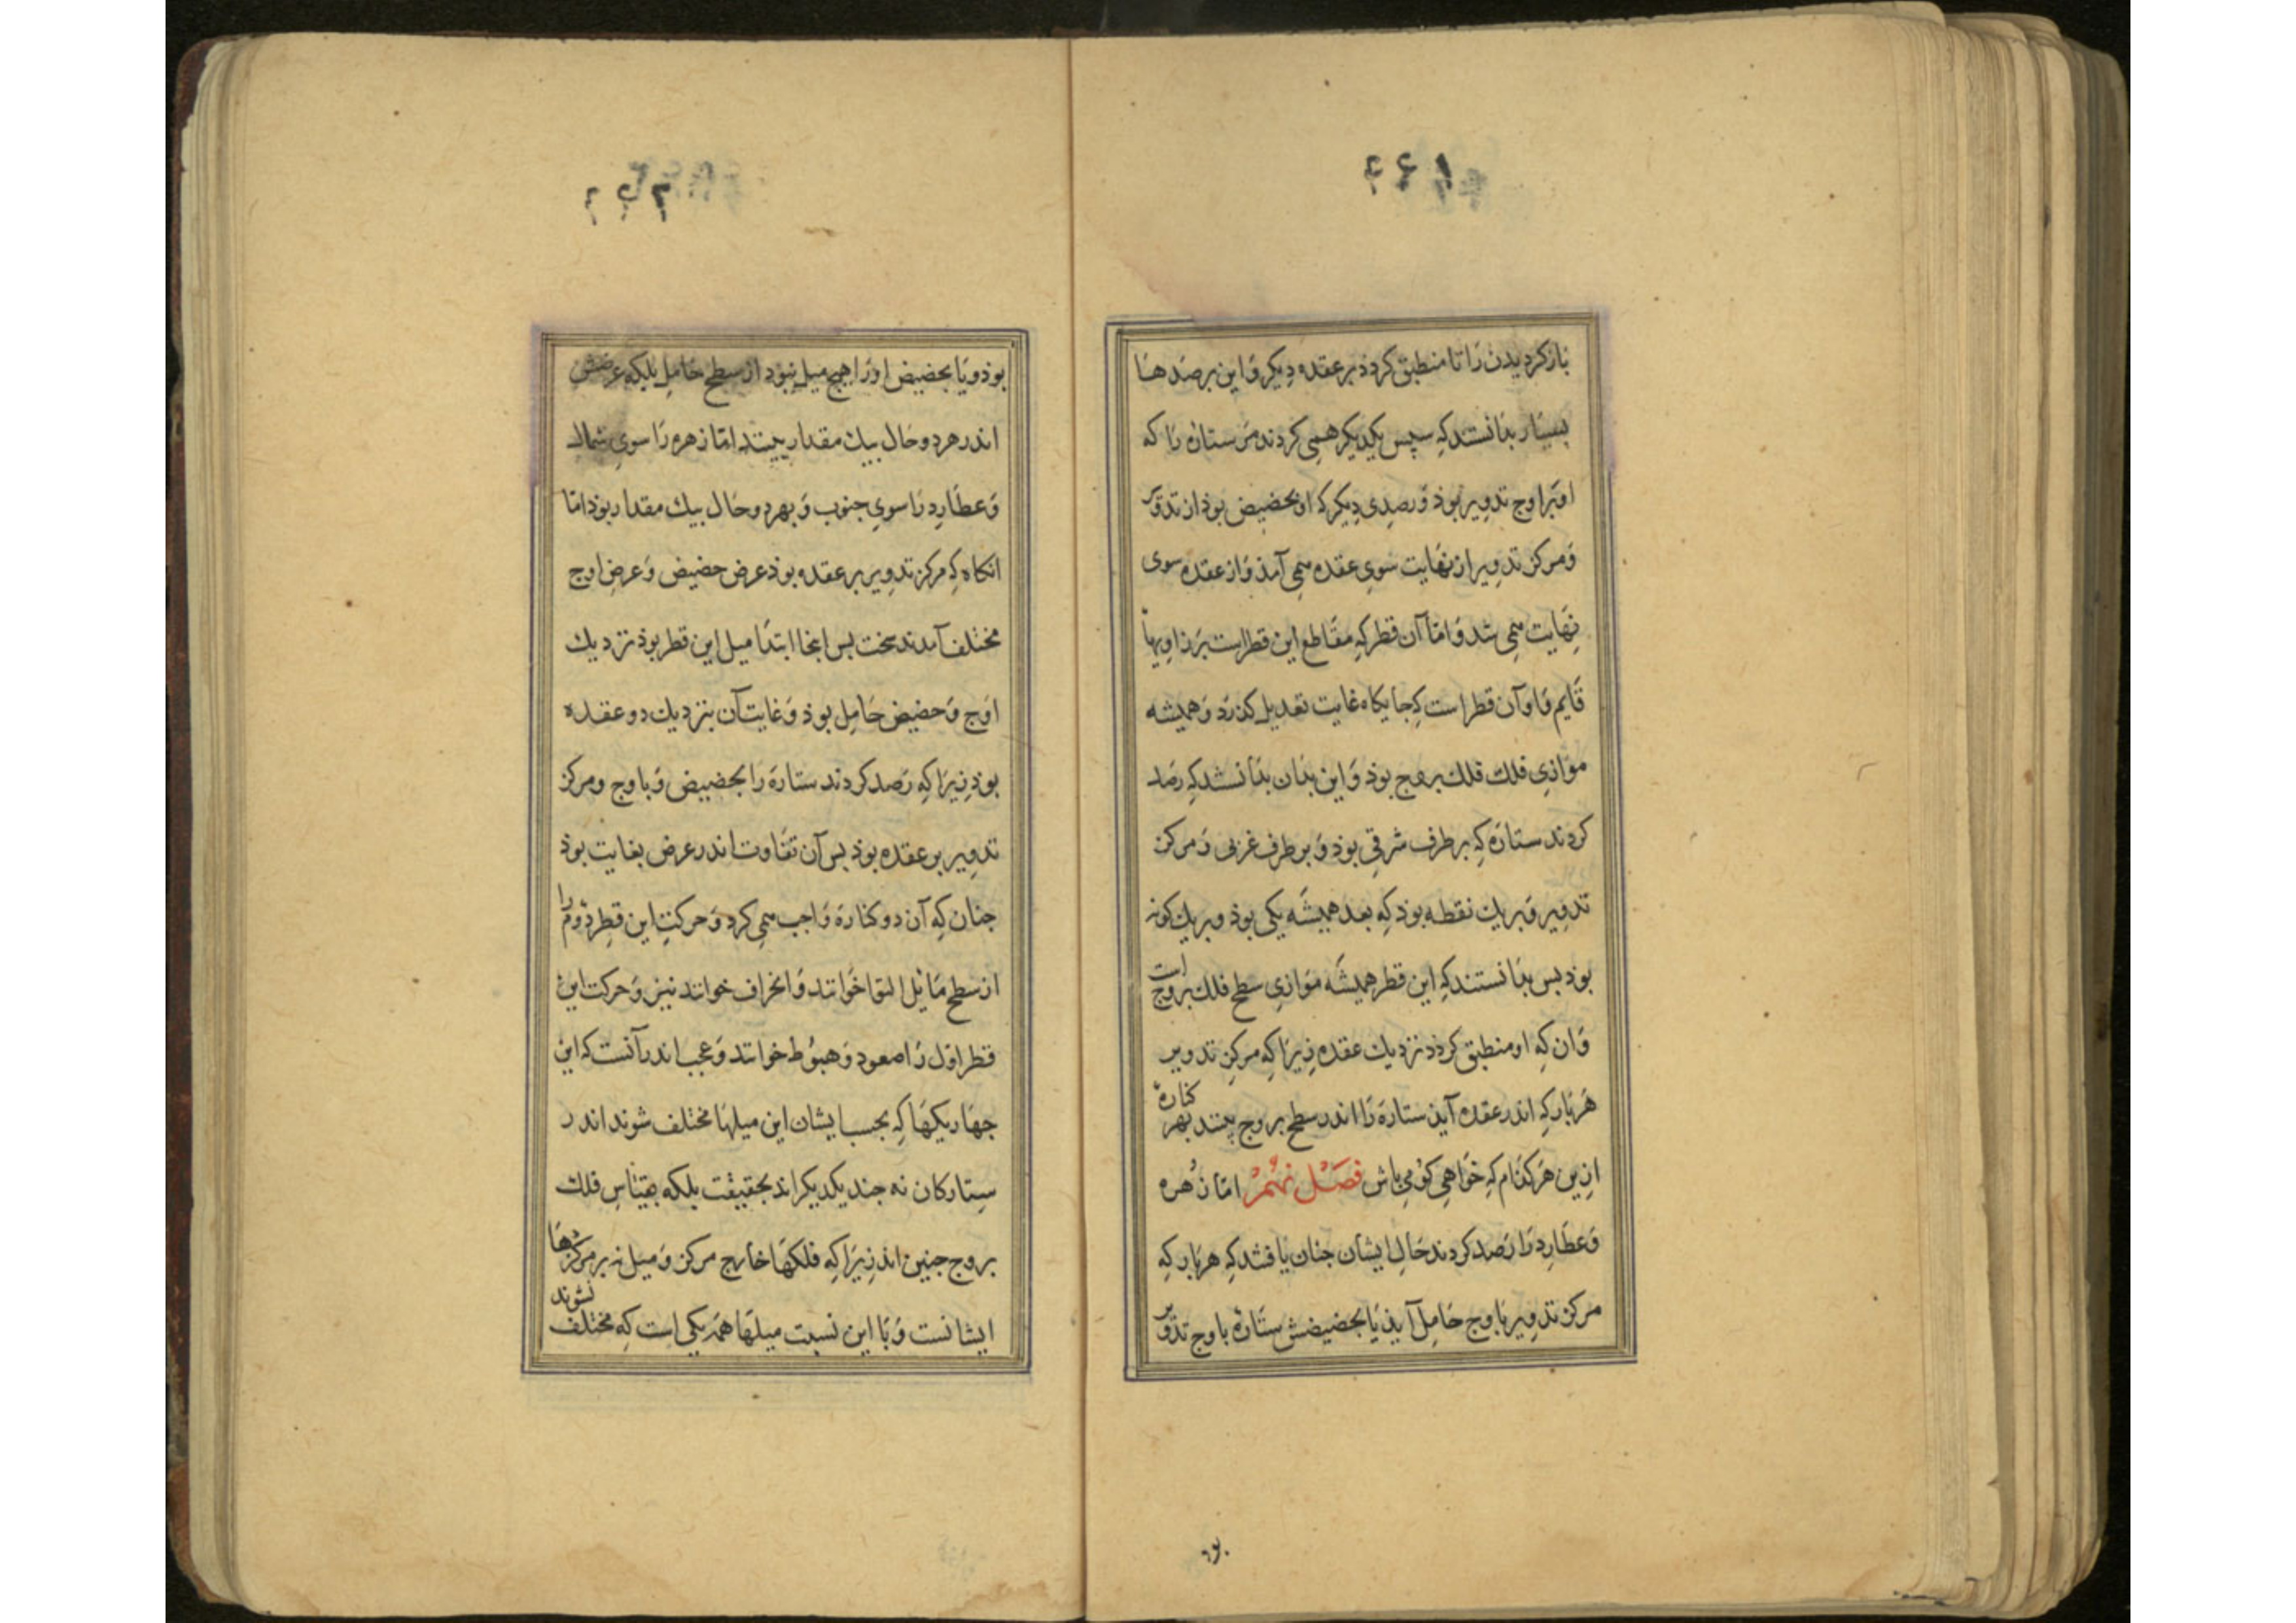 بازکردیدن رَا تا منطبق کردذ بر عقده دیکر وَاین برصَدهَا
بسیَار بدَانستند کِه سپس یکدیکر همِی کردند مَر ستارَه رَا که
او بَر اوج تدویر بوذ وَ رصدِی دِیکر که او بحضیض بوذ از تدویر
وَمرکز تدوِیر از نهَایت سُویِ عقده مِمی آمذ وَاز عقده سوی
نِهَایت مِمی شد وَامّا آن قطر کِه مقَاطع این قطر است بَر زاویهٔ
قَایم وَاو آن قطر است کِه جایکاه غایت تعدیل کذرَد وَهمیشه
موَازیِ فلك فلك بروج بوذ وَاین بدَان بدَانستند کِه رصَد
کردند ستارَه کِه بر طرف شرقی بوذ وَ بر طرف غربی وَمرکز
تدوِیر وَبر یك نقطه بوذ کِه بعد همیشَه یکی بوذ وبر یك کونه
بوذ بس بدَانستند کِه این قطر همیشَه موَازیِ سطحِ فلك بروج است
وَان کِه او منطبق کردد نزدیك عقده زِیرَا کِه مرکز تدویر
هَر بَار کِه اندر عقده آیذ ستارَه رَا اندر سطحِ بروج بینند بهر کنارَهٔ
ازین هَر کدَام کِه خوَاهی کو می باش فصَل نهُم امّا زُهره
وَعطَارِد رَا رَصَد کردند حَالِ ایشَان جنان یَافتند کِه هر بَار کِه
مرکز تدوِیر باوج حَامِل آیذ یَا بحضیضش ستَارهٔ باوج تدویر
بوذ ویَا بحضیض او رَا هیچ میل نبوذ از سطحِ حَامِل بلکه عرضش
اندر هر دو حَال بیك مقدار بینند امّا زهره رَا سوی شمال
وَعطَارِد رَا سویِ جنوب وَبهر دو حَال بیك مقدار بوذ امّا
انکاه کِه مرکز تدوِیر بر عقده بوذ عرض حضیض وَعرضِ اوج
مختلف آمدند سخت بس اینجا ابتدَا میل این قطر بوذ نزدیك
اوَج وَحضیض حَامِل بوذ وَغایت آن بنزدیك دو عقده
بوذ زِیرَا کِه رَصَد کردند ستارَه را بحضیض وَباوج ومرکز
تدوِیر بر عقده بوذ بس آن تفَاوت اندر عرض بغایت بوذ
جنان کِه آن دو کنارَه وَاجب مِمی کرد وَحرکتِ این قطرِ دوم را
از سطحِ مَائِل التوَا خوَانند وَانحرَاف خوانند نیز وَحرکت این
قطر اوّل رَا صعود وَهبوُط خوانند وَعجب اندر آنست که این
جهَار یکهَا کِه بحسب ایشان این میلهَا مختلف شوند اندر
ستارکان نه جند یکدیکر اند بحقیقت بلکه بقیَاسِ فلك
بروج جنین اند زِیرَا کِه فلکهَا خارج مرکز وَمیل نه بر مرکزهَا
ایشانست وَبَا این نسبت میلهَا همَه یکی است کِه مختلف نشوند